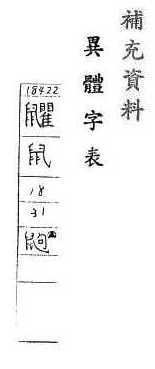 補充資料
異體字表
18422
鼠
18
31
鼩